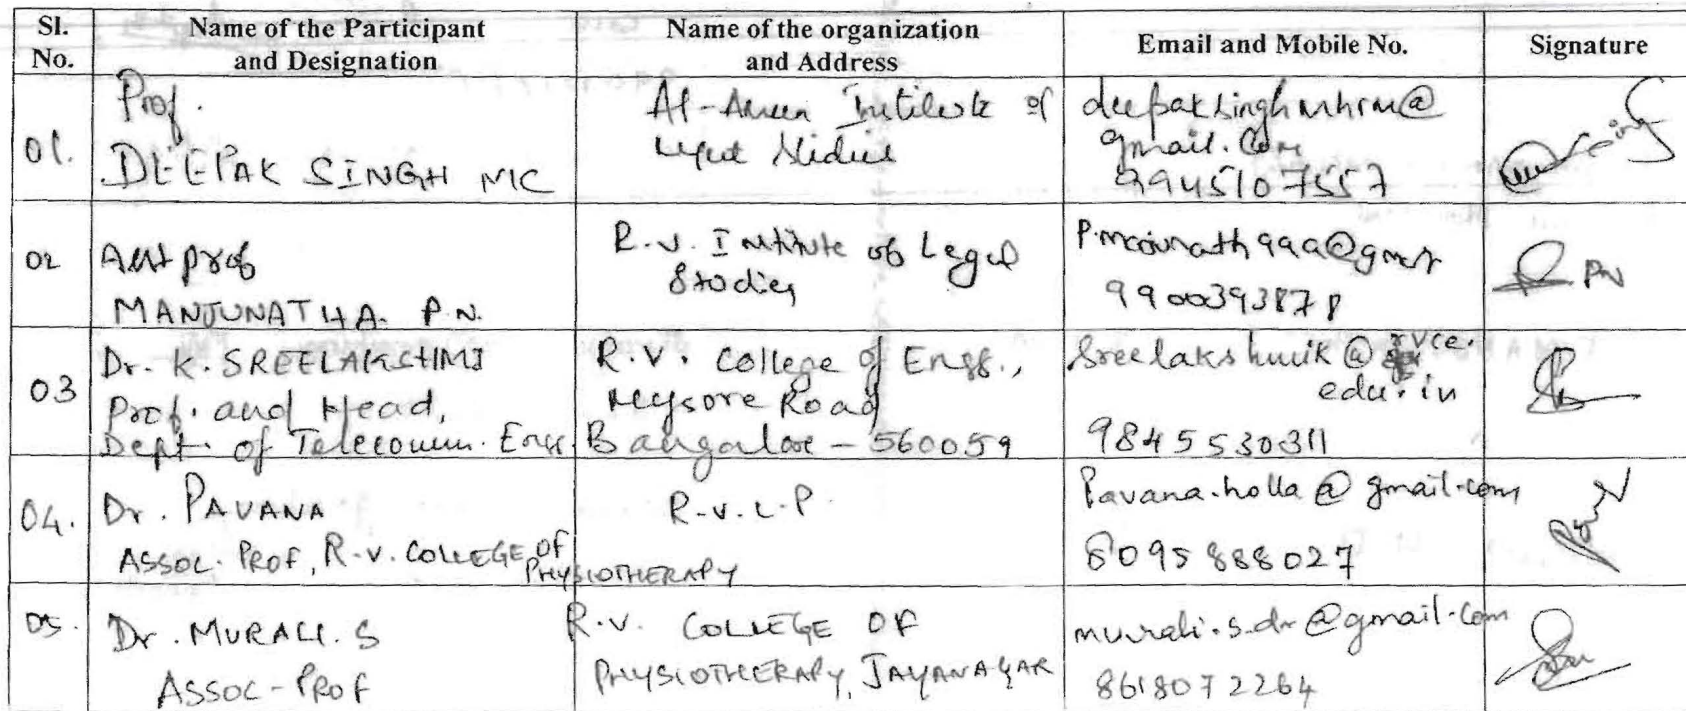 Sl. No.
Name of the Participant and Designation
Name of the organization and Address
Email and Mobile No.
Signature
01.
Prof.
DEEPAK SINGH
Al-Ameen Institute of
deepaksinghmhrm@
gmail.com
9945107557
02
Asst prof
MANJUNATHA. P.N.
R.V. Institute of Legal
Studies
9900393878
PN
03
Dr. K. SREELAKSHMI
Prof. and Head,
Dept. of Telecomm. Engg.
R.V. College of Engg.,
Mysore Road
Bangalore - 560059
Sreelakshmik@rvce.
edu.in
9845530311
04.
Dr. PAVANA
ASSOC. PROF, R.V. COLLEGE OF
PHYSIOTHERAPY
R.V.C.P
Pavana.holla@gmail.com
8095888027
05.
Dr. MURALI. S
ASSOC-PROF
R.V. COLLEGE OF
PHYSIOTHERAPY, JAYANAGAR
murali.s.dr@gmail.com
8618072264